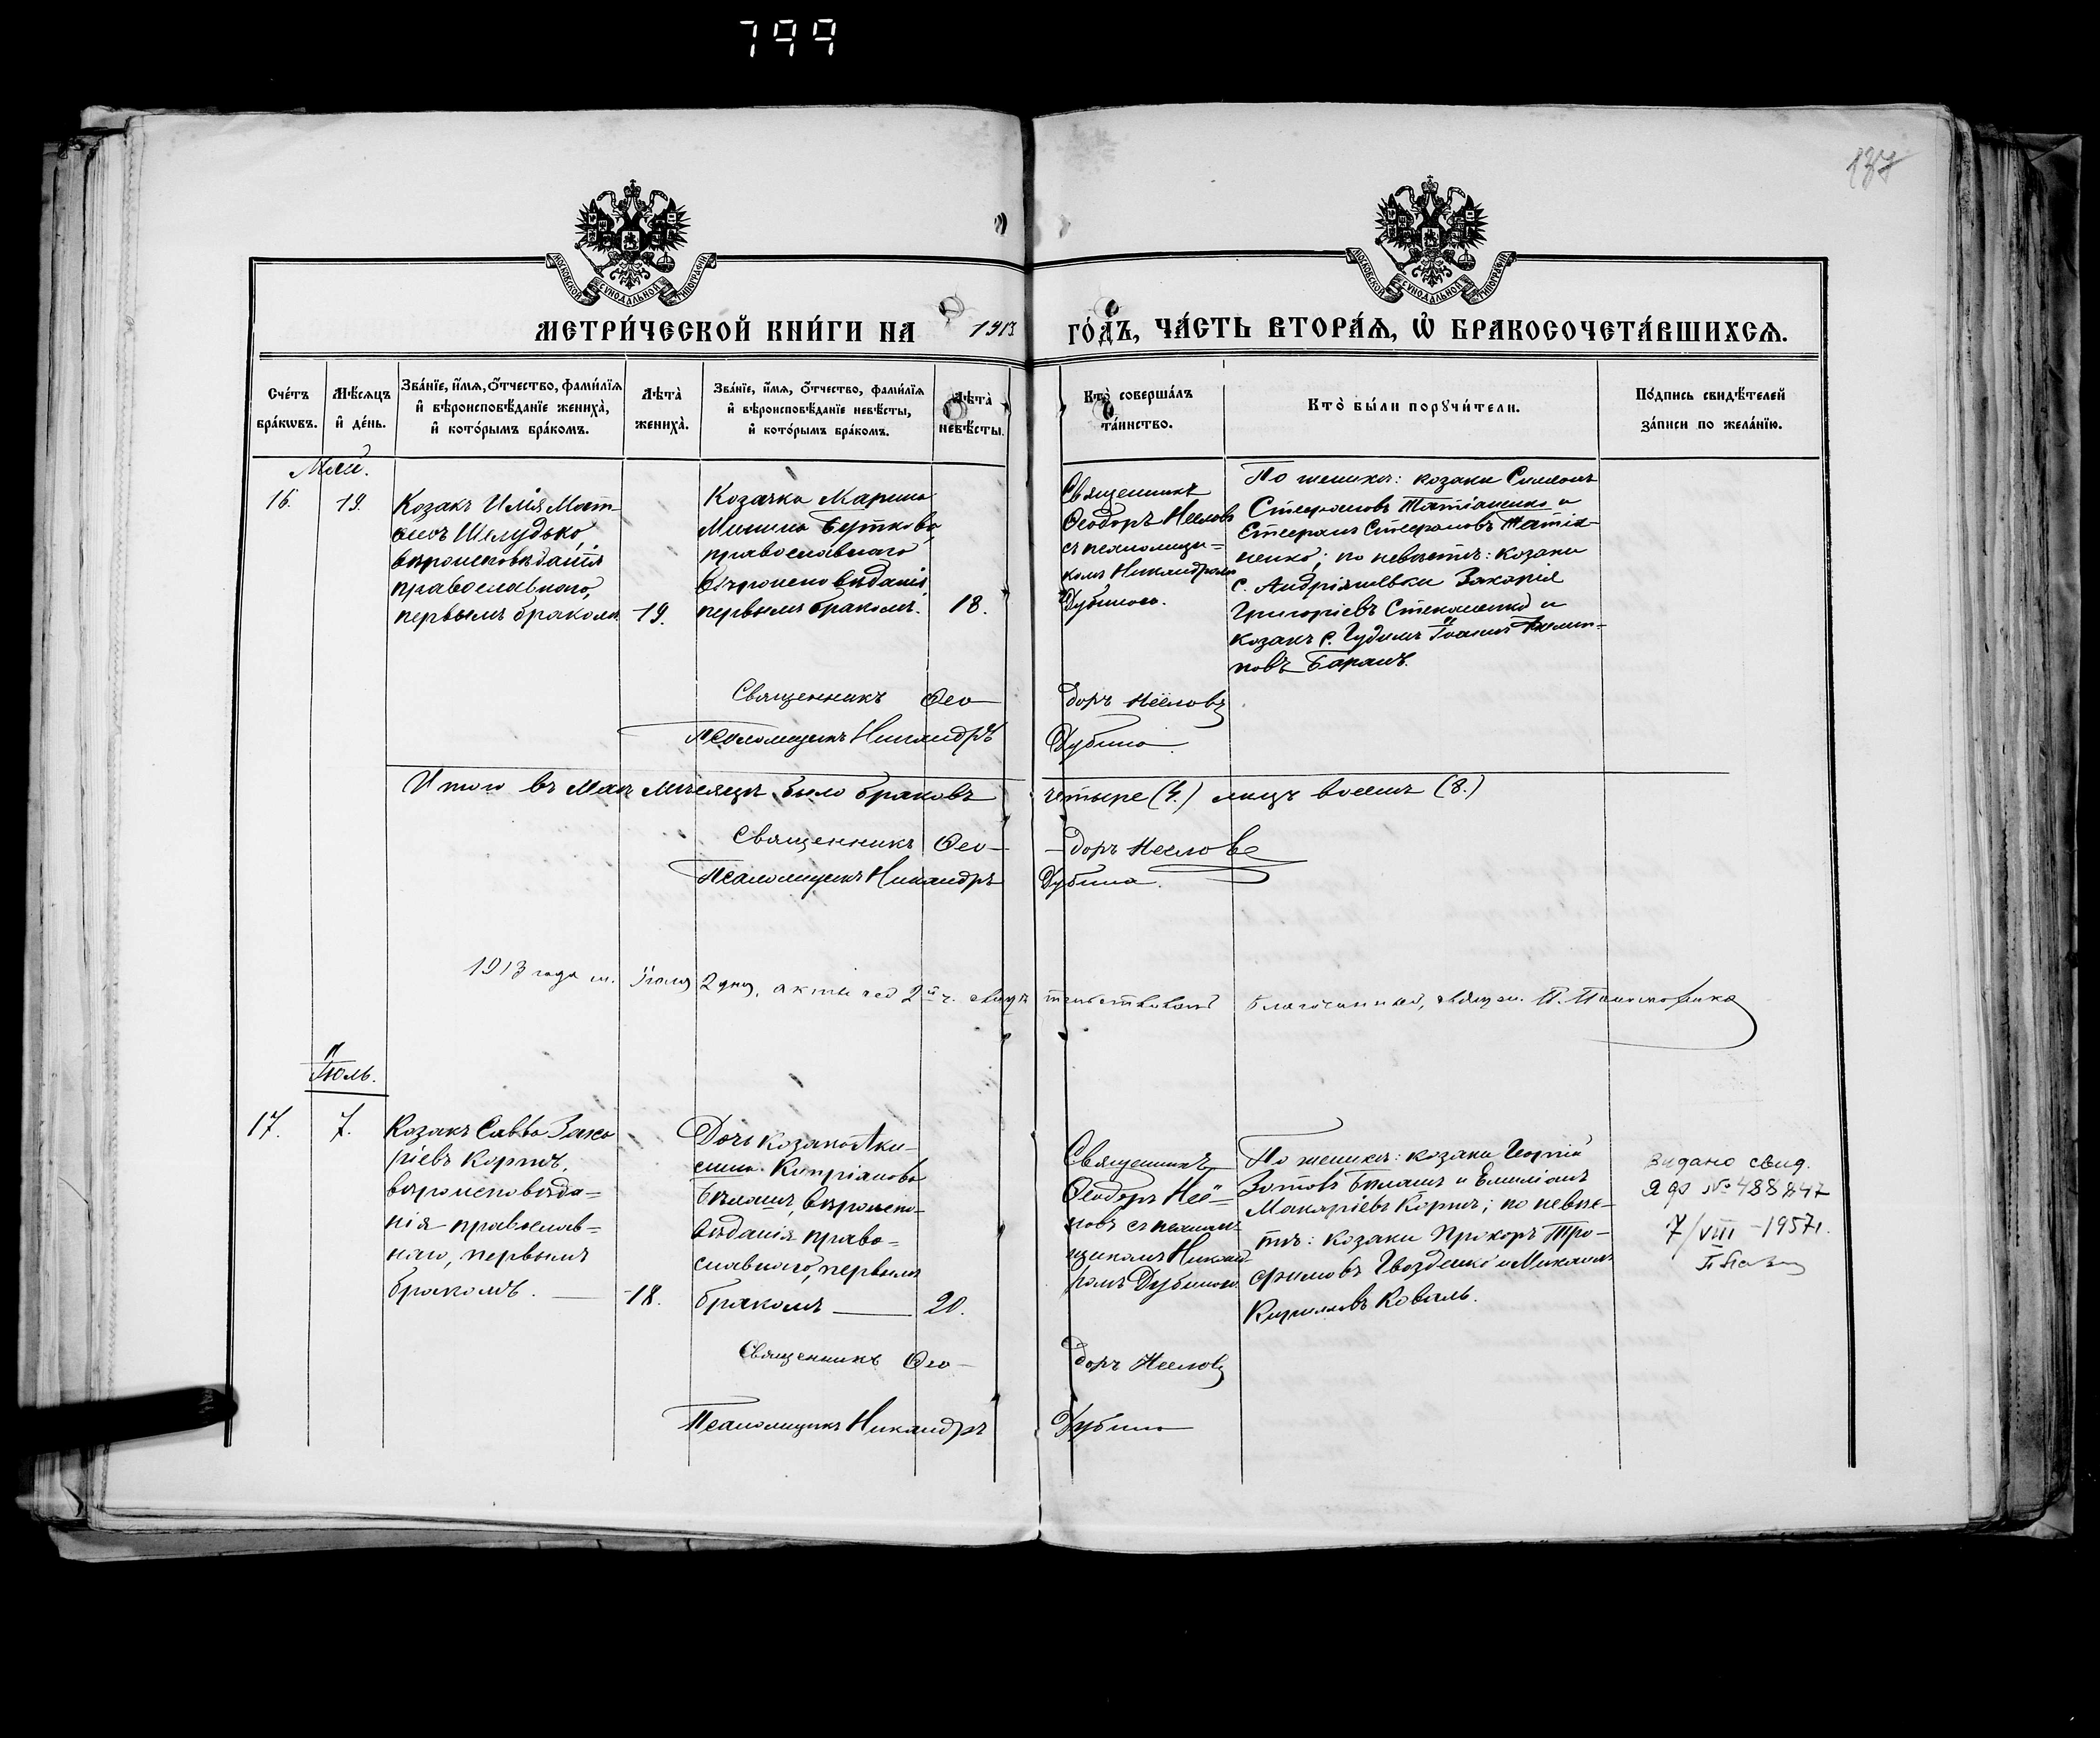 799
137
МОСКОВСКОЙ СѴНОДАЛЬНОЙ ТИПОГРАФІИ
МОСКОВСКОЙ СѴНОДАЛЬНОЙ ТИПОГРАФІИ
МЕТРИ́ЧЕСКОЙ КНИ́ГИ НА 1913 ГО́ДЪ, ЧА́СТЬ ВТОРА́Ѧ, Ѡ҆ БРАКОСОЧЕТА́ВШИХСѦ.
Сче́тъ
бра́кѡвъ.
Мѣ́сѧцъ
и҆ де́нь.
Зва́нїе, и҆́мѧ, ѻ҆́тчество, фами́лїѧ
и҆ вѣроисповѣ́данїе жениха̀,
и҆ кото́рымъ бра́комъ.
Лѣта̀
жениха̀.
Зва́нїе, и҆́мѧ, ѻ҆́тчество, фами́лїѧ
и҆ вѣроисповѣ́данїе невѣ́сты,
и҆ кото́рымъ бра́комъ.
Лѣта̀
невѣ́сты.
Кто̀ соверша́лъ
та́инство.
Кто̀ бы́ли порꙋчи́тели.
По́дпись свидѣ́телей
за́писи по жела́нїю.
Май.
16.
19.
Козакъ Илія Мат-
ѳеевъ Шелудько,
вѣроисповѣданія
православнаго,
первымъ бракомъ
19.
Козачка Марина
Минина Буткова,
православнаго
вѣроисповѣданія,
первымъ бракомъ.
18.
Священникъ
Ѳеодоръ Нееловъ
съ псаломщи-
комъ Никандромъ
Дубиною.
По женихѣ: козаки Симеонъ
Стефановъ Татіаненко и
Стефанъ Стефановъ Татіа-
ненко; по невѣстѣ: козаки
с. Андріяшевки Захарія
Григоріевъ и
козакъ с. Гудимъ Іоаннъ
новъ Баранъ.
Священникъ Ѳео-доръ Нееловъ
Псаломщикъ Никандръ Дубина.
Итого въ Маѣ мѣсяцѣ было браковъ четыре (4.) лицъ восемь (8.)
Священникъ Ѳео-доръ Нееловъ
Псаломщикъ Никандръ Дубина.
1913 года м. Іюля 2 дня, акты сей 2й ч. свидѣтельствовалъ Благочинный, священ. П.
Іюль.
17.
7.
Козакъ Савва Заха
ріевъ Корпичъ,
вѣроисповѣда-
нія православ-
наго, первымъ
бракомъ.
18.
Дочь козака Аки-
лина Кипріанова
Бѣлашъ, вѣроиспо-
вѣданія право-
славнаго, первымъ
бракомъ
20.
Священникъ
Ѳеодоръ Нее-
ловъ съ псалом-
щикомъ Никанд-
ромъ Дубиною.
По женихѣ: козаки Георгій
Зотовъ Бѣлашъ и Емиліанъ
Макаріевъ Корпичъ; по невѣс-
тѣ: козаки Прохоръ Тро-
фимовъ Гвозденко и Михаилъ
Кирилловъ Коваль.
Видано свид.
ЯФ № 488847
7/VIII-1957 г.
Священникъ Ѳео-доръ Нееловъ
Псаломщикъ Никандръ Дубина